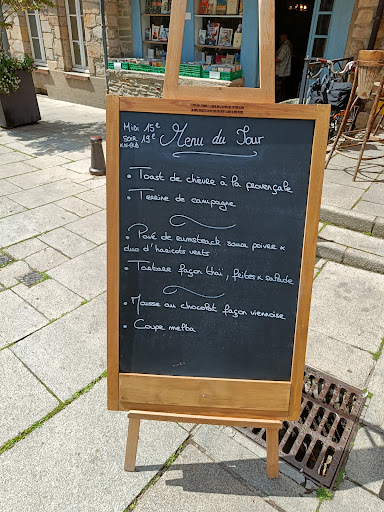 Midi 15€ Menu du Jour
SOIR 19€
• Toast de chèvre à la provençale
• Terrine de campagne
• Pavé de rumsteack sauce poivre &
duo d'haricots verts
• Tartare façon thaï, frites & salade
• Mousse au chocolat façon viennoise
• Coupe melba